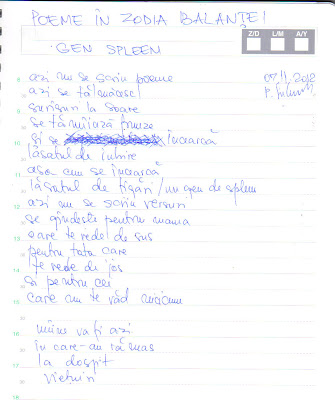 POEME ÎN ZODIA BALANȚEI
GEN SPLEEN
Z/D L/M A/Y
azi nu se scriu poeme
07.11.2012
azi se tălmăcesc
surâsuri la soare
se tămâiază frunze
și se încearcă
lăsatul de iubire
așa cum se încearcă
lăsatul de țigări / un gen de spleen
azi nu se scriu versuri
se gândește pentru mama
care te vede de sus
pentru tata care
te vede de jos
și pentru cei
care nu te văd nicicum
mâine va fi azi
în care-au rămas
la dospit
8
9
10
11
12
13
14
15
16
17
18